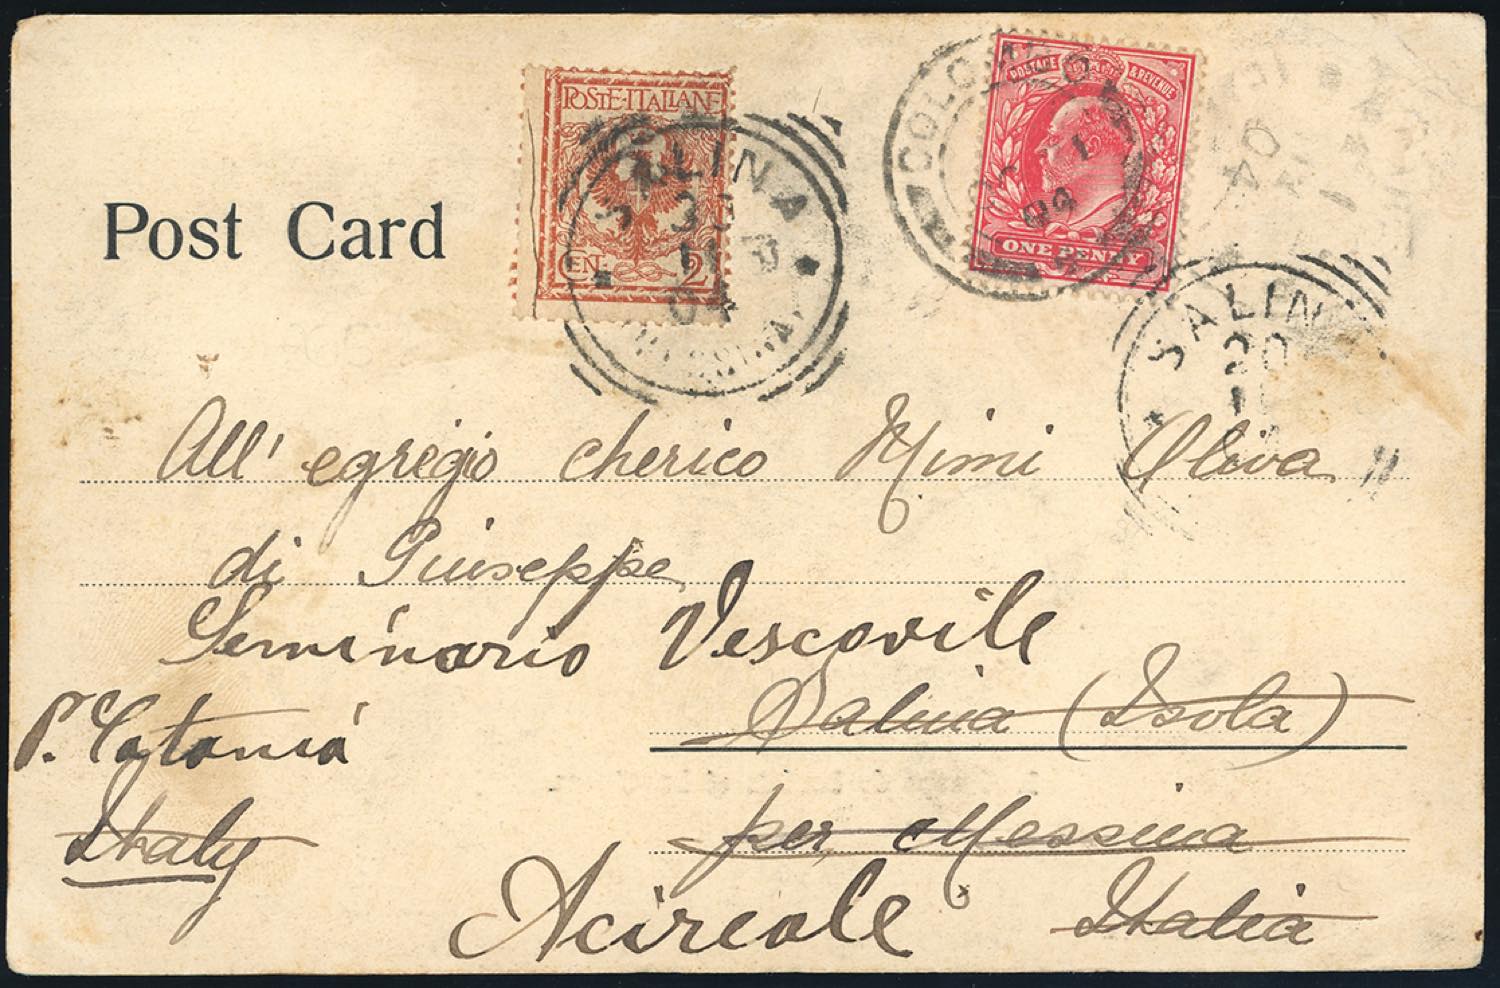 POSTE·ITALIANE
CEN: 2
SALINA
04
POSTAGE & REVENUE
ONE PENNY
COLOMBO
04
SALINA
20
Post Card
All' egregio cherico Mimi Oliva
di Giuseppe
Seminario Vescovile
Salina (Isola)
P. Catania
per Messina
Italy
Acireale Italia